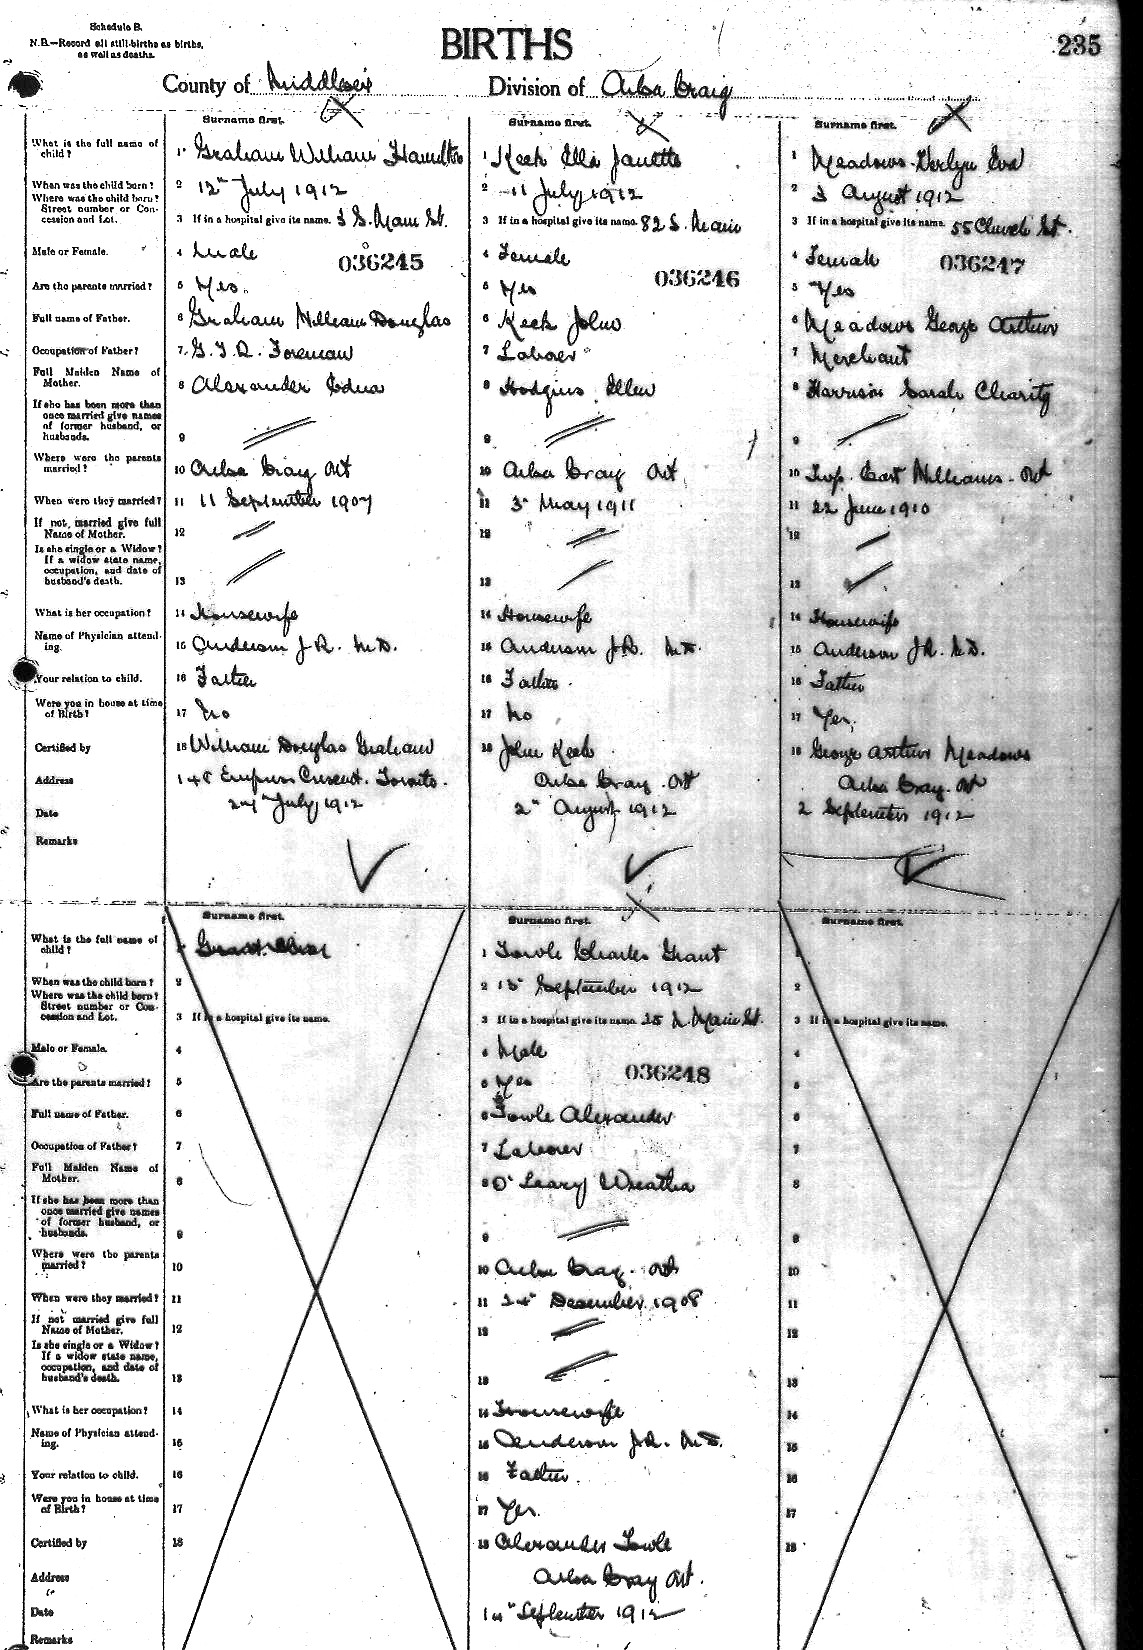 Schedule B.
N.B.—Record all still-births as births,
as well as deaths.
BIRTHS
235
County of Middlesex
Division of Ailsa Craig
Surname first.
Surname first.
Surname first.
What is the full name of
child?
1 Graham William Hamilton
1 Keck Ella Janette
1 Meadows Eva
When was the child born?
2 12th July 1912
2 11 July 1912
2 3 August 1912
Where was the child born?
Street number or Con-
cession and Lot.
3 If in a hospital give its name. 3 S. Main St.
3 If in a hospital give its name. 82 S. Main
3 If in a hospital give its name. 55 Church St.
Male or Female.
4 Male
036245
4 Female
036246
4 Female
036247
Are the parents married?
5 Yes.
5 Yes
5 Yes
Full name of Father.
6 Graham William Douglas
6 Keck John
6 Meadows George Arthur
Occupation of Father?
7 G.T.R. Foreman
7 Laborer
7 Merchant
Full Maiden Name of
Mother.
8 Alexander Edna
8 Hodgins Ellen
8 Harrison Sarah Charity
If she has been more than
once married give names
of former husband, or
husbands.
9
9
9
Where were the parents
married?
10 Ailsa Craig Ont
10 Ailsa Craig Ont
10 Twp. East Williams. Ont
When were they married?
11 11 September 1907
11 3rd May 1911
11 22 June 1910
If not, married give full
Name of Mother.
12
12
12
Is she single or a Widow?
If a widow state name,
occupation, and date of
husband's death.
13
13
13
What is her occupation?
14 Housewife
14 Housewife
14 Housewife
Name of Physician attend-
ing.
15 Anderson J.R. M.D.
15 Anderson J.R. M.D.
15 Anderson J.R. M.D.
Your relation to child.
16 Father
16 Father
16 Father
Were you in house at time
of Birth?
17 No
17 No
17 Yes.
Certified by
18 William Douglas Graham
18 John Keck
18 George Arthur Meadows
Address
148 Empress Crescent. Toronto.
Ailsa Craig. Ont
Ailsa Craig. Ont
Date
July 1912
2nd August 1912
2 September 1912
Remarks
Surname first.
Surname first.
Surname first.
What is the full name of
child?
1
1 Towle Charles Grant
1
When was the child born?
2
2 13th September 1912
2
Where was the child born?
Street number or Con-
cession and Lot.
3 If in a hospital give its name.
3 If in a hospital give its name. 25 N. Main St.
3 If in a hospital give its name.
Male or Female.
4
4 Male
4
036248
Are the parents married?
5
5 Yes
5
Full name of Father.
6
6 Towle Alexander
6
Occupation of Father?
7
7 Laborer
7
Full Maiden Name of
Mother.
8
8 O'Leary Wreatha
8
If she has been more than
once married give names
of former husband, or
husbands.
9
9
9
Where were the parents
married?
10
10 Ailsa Craig. Ont
10
When were they married?
11
11 24th December 1908
11
If not married give full
Name of Mother.
12
12
12
Is she single or a Widow?
If a widow state name,
occupation, and date of
husband's death.
13
13
13
What is her occupation?
14
14 Housewife
14
Name of Physician attend-
ing.
15
15 Anderson J.R. M.D.
15
Your relation to child.
16
16 Father.
16
Were you in house at time
of Birth?
17
17 Yes.
17
Certified by
18
18 Alexander Towle
18
Address
Ailsa Craig Ont.
Date
14th September 1912
Remarks